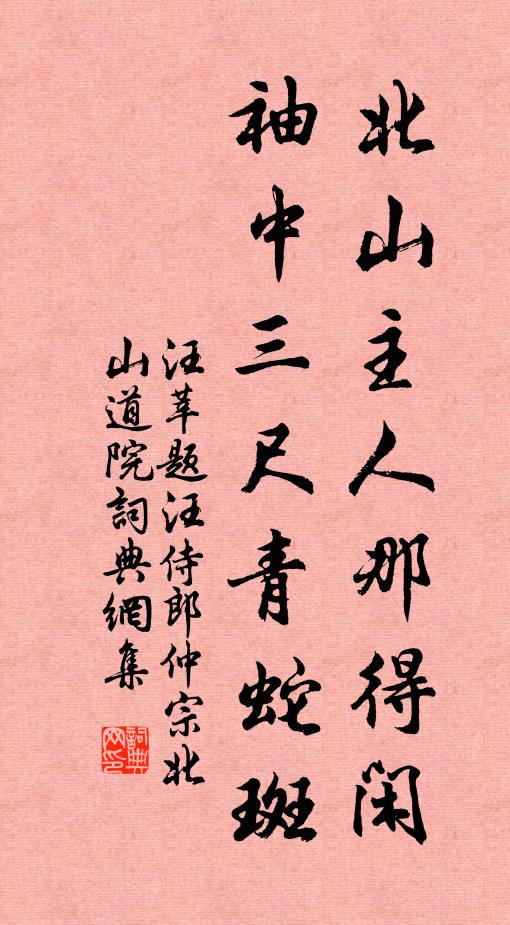 北山主人那得闲
袖中三尺青蛇斑
汪莘题汪侍郎仲宗北
山道院詞典網集
詞典
网印